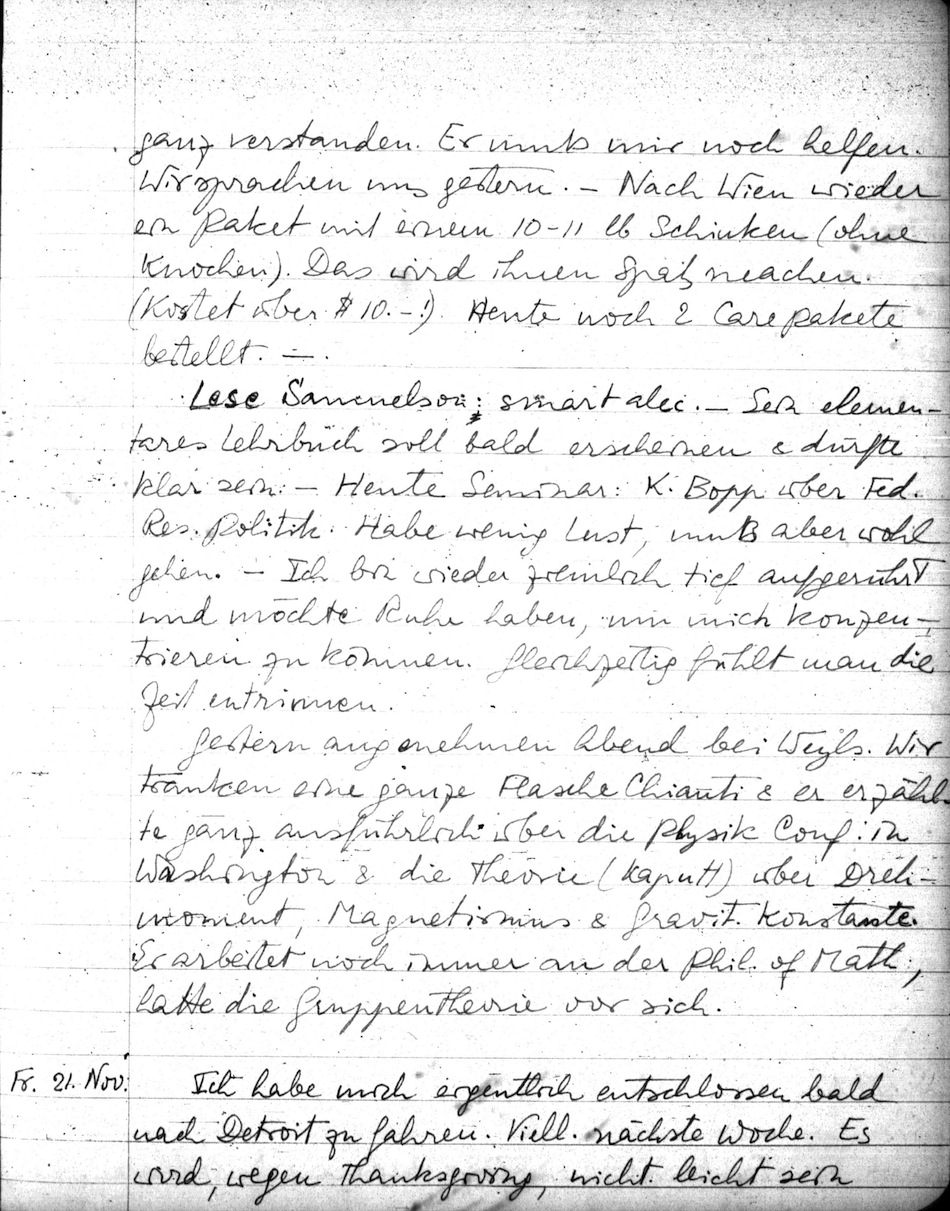 ganz verstanden. Er muß mir noch helfen.
Wir sprachen uns gestern. – Nach Wien wieder
ein Paket mit einem 10-11 lb Schinken (ohne
Knochen). Das wird ihnen Spaß machen.
(Kostet über $ 10.-!). Heute noch 2 Carepakete
bestellt. —.
Lese Samuelson: smart alec. – Sein elemen-
tares Lehrbuch soll bald erscheinen & dürfte
klar sein. – Heute Seminar: K. Bopp über Fed.
Res. Politik. Habe wenig Lust, muß aber wohl
gehen. – Ich bin wieder ziemlich tief aufgerührt
und möchte Ruhe haben, um mich konzen-
trieren zu können. Gleichzeitig fühlt man die
Zeit entrinnen.
Gestern angenehmen Abend bei Weyls. Wir
tranken eine ganze Flasche Chianti & er erzähl
te ganz ausführlich über die Physik Conf. in
Washington & die Theorie (kaputt) über Dreh-
moment, Magnetismus & Gravit. Konstante.
Er arbeitet noch immer an der Phil. of Math.,
hatte die Gruppentheorie vor sich.
Fr. 21. Nov. Ich habe mich eigentlich entschlossen bald
nach Detroit zu fahren. Viell. nächste Woche. Es
wird, wegen Thanksgiving, nicht leicht sein